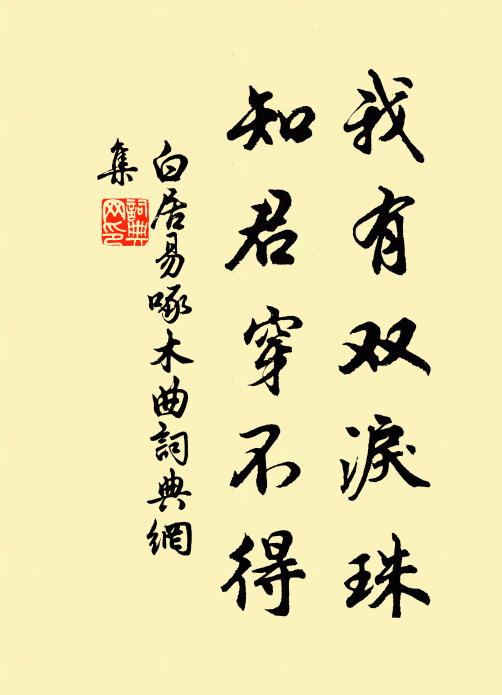 我有双淚珠
知君穿不得
白居易啄木曲詞典網
集
詞典
网印